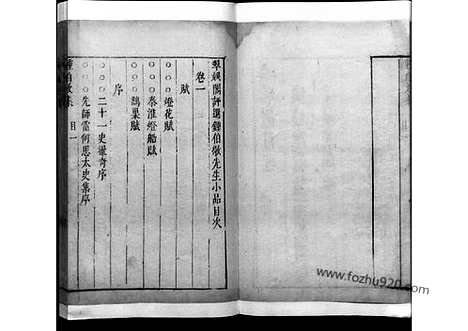 翠娛閣評選鍾伯敬先生小品目次
卷一
賦
○○○燈花賦
○○○秦淮燈船賦
○○○鵲巢賦
序
○○○二十一史撮奇序
○○○先師雷何思太史集序
鍾伯敬集
目一
www.fozhu920.com